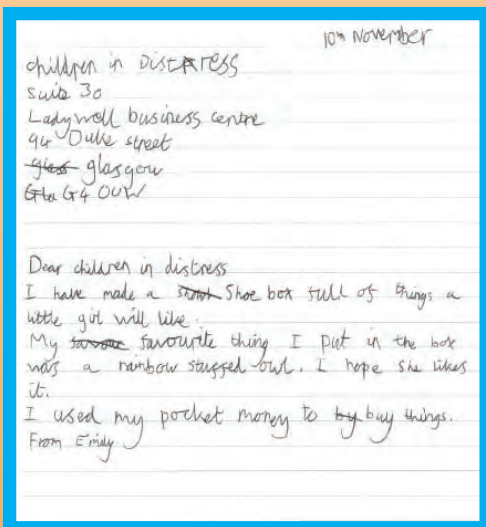 10th November
children in DistRess
suite 30
Ladywell business centre
94 Duke street
glasgow
G4 0UW
Dear children in distress
I have made a Shoe box full of things a
little girl will like.
My favourite thing I put in the box
was a rainbow stuffed owl. I hope she likes
it.
I used my pocket money to buy things.
From Emily